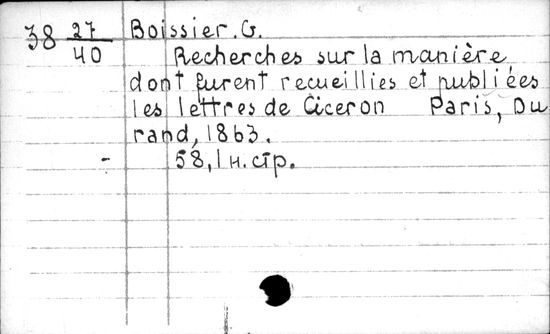 38 27/40 Boissier. G.
Recherches sur la manière
dont furent recueillies et publiées
les lettres de Ciceron Paris, Du
rand, 1863.
- 58, 1 н. стр.